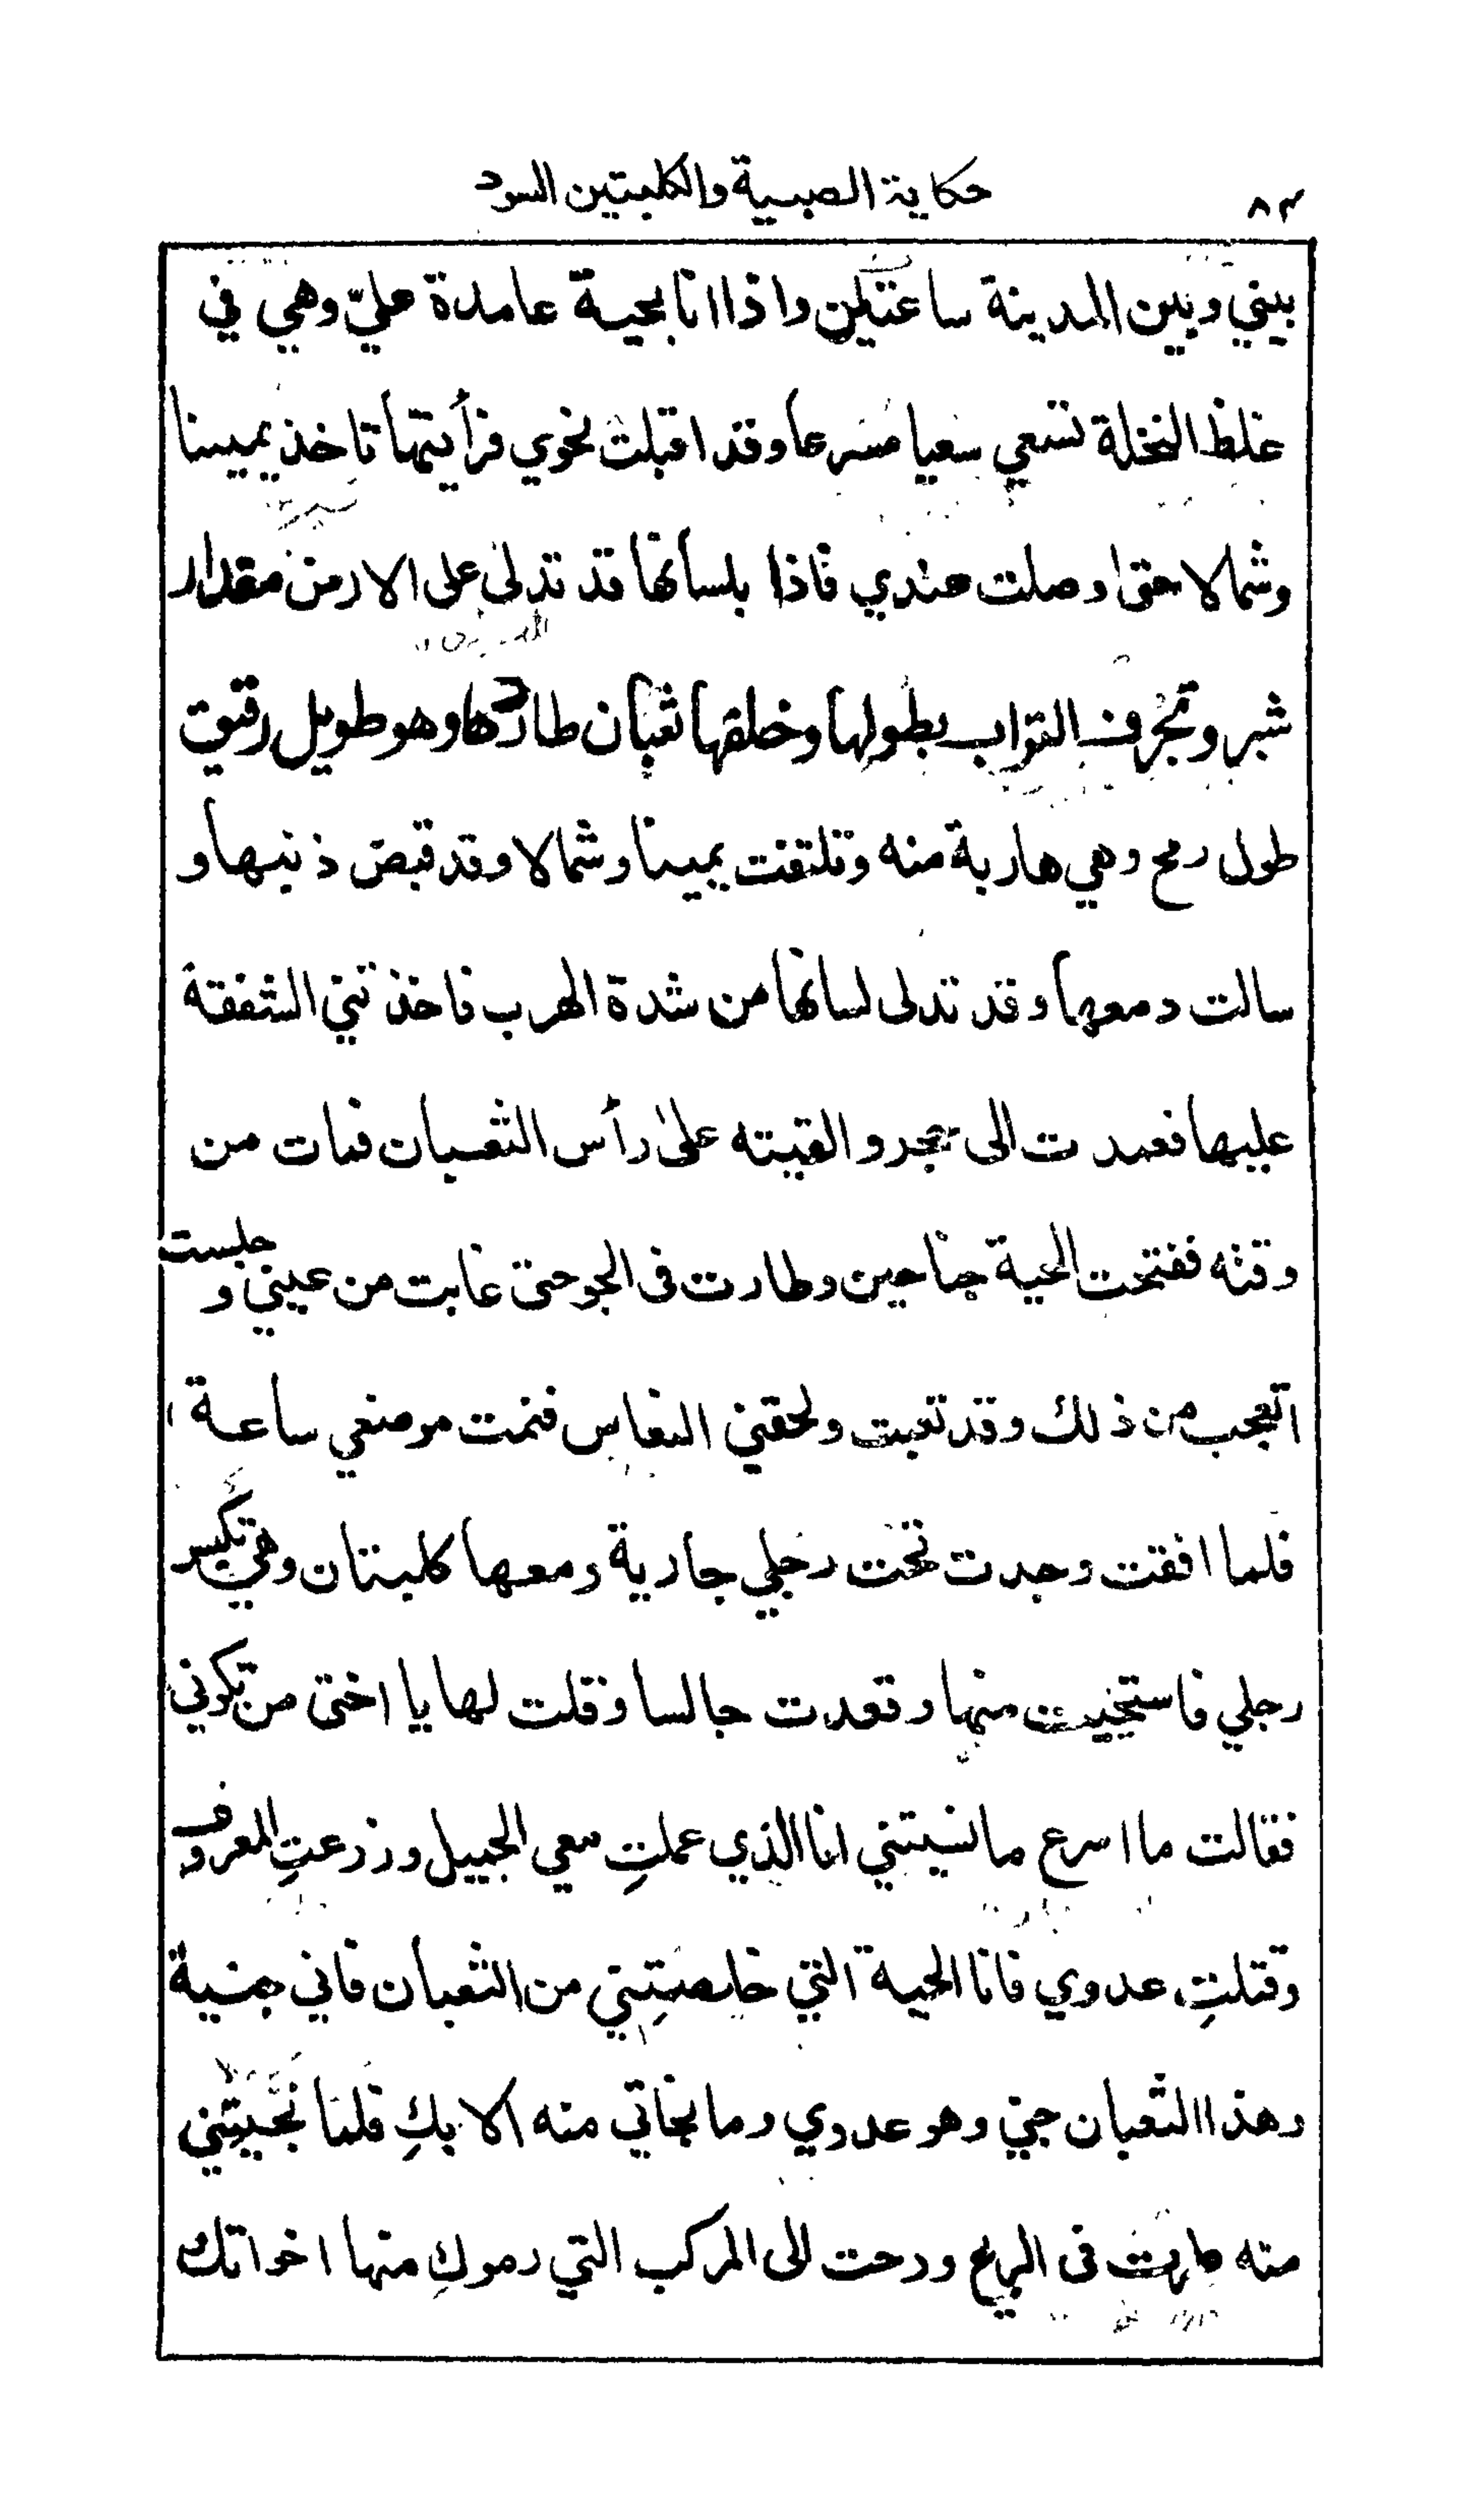 ٨٣ حكاية الصبية والكلبتين السود
بيني وبين المدينة ساعتين واذا انا بحية عامدة عليّ وهي في
غلظ النخلة تسعي سعيا مسرعا وقد اقبلت نحوي فرأيتها تاخذ يمينا
وشمالا حتى وصلت عندي فاذا بلسانها قد تدلى على الارض مقدار
شبر وتجرف التراب بطولها وخلفها ثعبان طاردها وهو طويل رقيق
طول رمح وهي هاربة منه وتلتفت يمينا وشمالا وقد قبض ذنبها و
سالت دمعها وقد تدلى لسانها من شدة الهرب فاخذتني الشفقة
عليها فعمدت الى حجر والقيته على رأس الثعبان فمات من
وقته ففتحت الحية جناحين وطارت فى الجو حتى غابت من عيني و جلست
اتعجب من ذلك وقد تعبت ولحقني النعاس فنمت موضعي ساعة
فلما افقت وجدت تحت رجلي جارية ومعها كلبتان وهي تكبس
رجلي فاستحييت منها وقعدت جالسا وقلت لها يا اختى من تكوني
فقالت ما اسرع ما نسيتني انا الذي عملتِ معي الجميل وزرعتِ المعروف
وقتلتِ عدوي فانا الحية التي خلصتِني من الثعبان فاني جنية
وهذا الثعبان جني وهو عدوي وما نجاني منه الا بكِ فلما نجيتِني
منه طرت فى الريح ورحت الى المركب التي رموكِ منها اخواتك